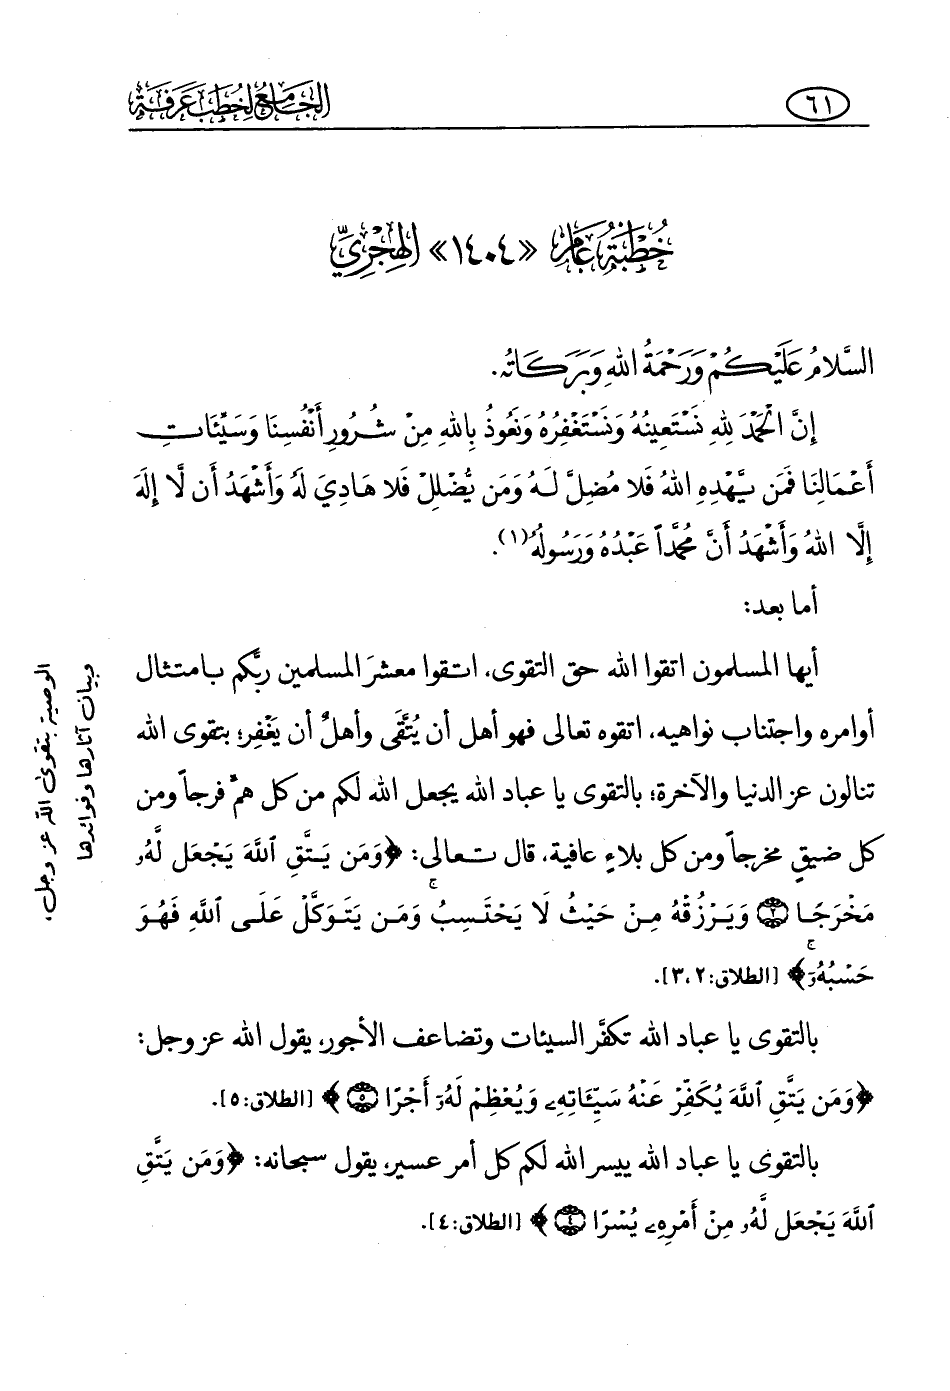 ٦١
الجَامِعُ لِخُطَبِ عَرَفَةَ
خُطْبَةُ عَامِ «١٤٠٤» الهِجْرِيِّ
السَّلامُ عَلَيْكُمْ وَرَحْمَةُ اللهِ وَبَرَكَاتُه.
إِنَّ الْحَمْدَ لِلهِ نَسْتَعِينُهُ وَنَسْتَغْفِرُهُ وَنَعُوذُ بِاللهِ مِنْ شُرُورِ أَنْفُسِنَا وَسَيِّئَاتِ
أَعْمَالِنَا فَمَن يَّهْدِهِ اللهُ فَلا مُضِلَّ لَهُ وَمَن يُّضْلِلْ فَلا هَادِيَ لَهُ وَأَشْهَدُ أَن لَّا إِلهَ
إِلَّا اللهُ وَأَشْهَدُ أَنَّ مُحَمَّداً عَبْدُهُ وَرَسُولُهُ(١).
أما بعد:
أيها المسلمون اتقوا الله حق التقوى، اتقوا معشرَ المسلمين ربَّكم بامتثال
أوامره واجتناب نواهيه، اتقوه تعالى فهو أهل أن يُتَّقَى وأهلٌ أن يَغْفِر؛ بتقوى الله
تنالون عز الدنيا والآخرة؛ بالتقوى يا عباد الله يجعل الله لكم من كل همٍّ فرجاً ومن
كل ضيقٍ مخرجاً ومن كل بلاءٍ عافية، قال تعالى: ﴿وَمَن يَتَّقِ ٱللَّهَ يَجْعَل لَّهُۥ
مَخْرَجًا ۝٢ وَيَرْزُقْهُ مِنْ حَيْثُ لَا يَحْتَسِبُ ۚ وَمَن يَتَوَكَّلْ عَلَى ٱللَّهِ فَهُوَ
حَسْبُهُۥٓ ۚ﴾ [الطلاق:٢،٣].
بالتقوى يا عباد الله تكفَّر السيئات وتضاعف الأجور، يقول الله عز وجل:
﴿وَمَن يَتَّقِ ٱللَّهَ يُكَفِّرْ عَنْهُ سَيِّـَٔاتِهِۦ وَيُعْظِمْ لَهُۥٓ أَجْرًا ۝٥﴾ [الطلاق:٥].
بالتقوى يا عباد الله ييسر الله لكم كل أمر عسير، يقول سبحانه: ﴿وَمَن يَتَّقِ
ٱللَّهَ يَجْعَل لَّهُۥ مِنْ أَمْرِهِۦ يُسْرًا ۝٤﴾ [الطلاق:٤].
الوصية بتقوى الله عز وجل،
وبيان آثارها وفوائدها